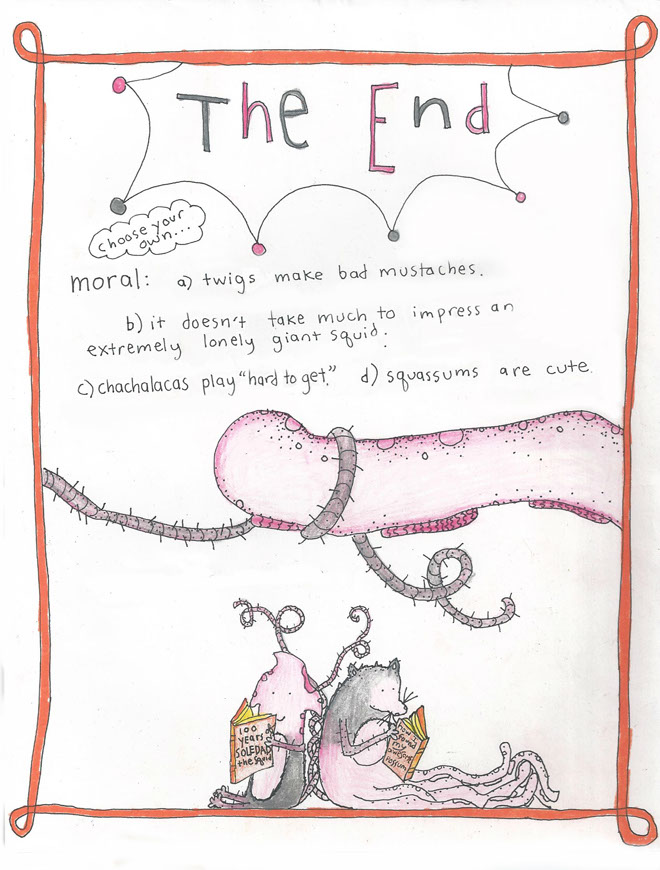 The End
choose your
own...
moral: a) twigs make bad mustaches.
b) it doesn't take much to impress an
extremely lonely giant squid.
c) chachalacas play "hard to get." d) squassums are cute.
100
years of
SOLEDAD
the squid
how i
found
my
awesome
possum